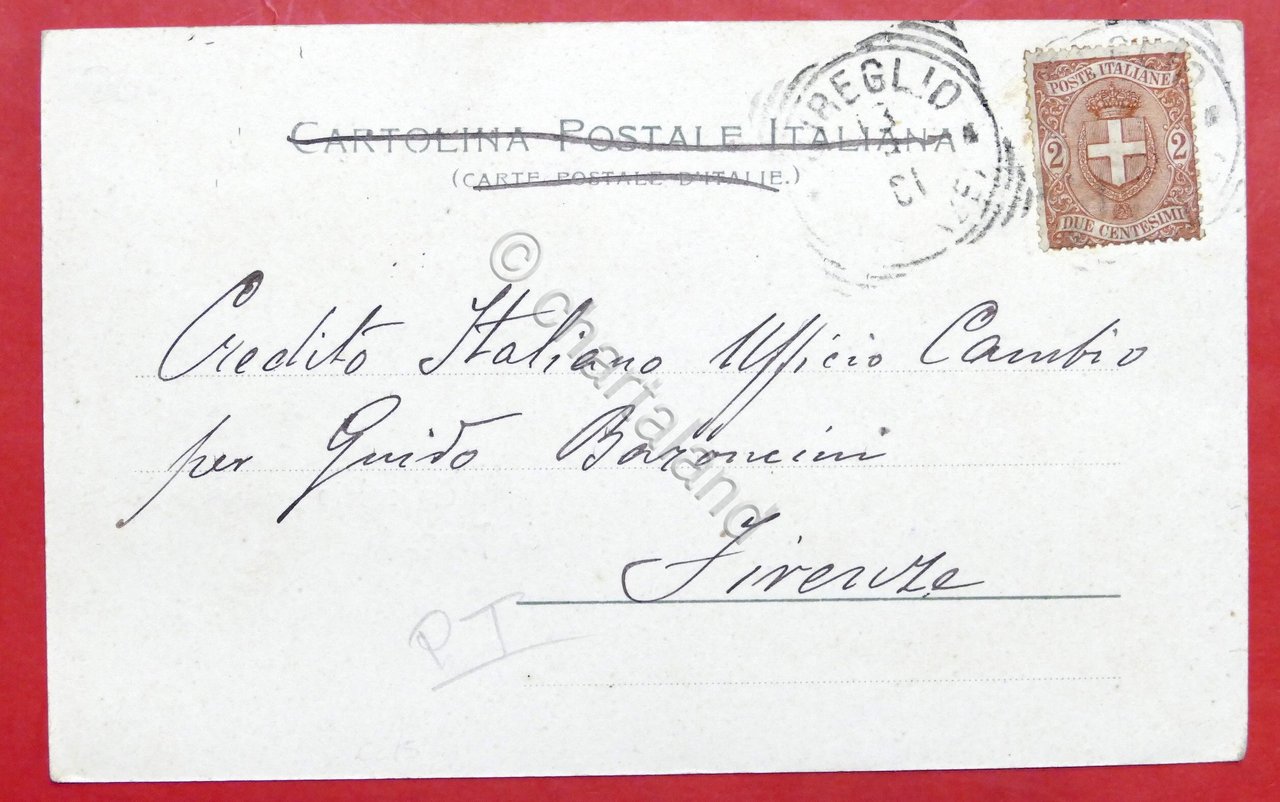 CARTOLINA POSTALE ITALIANA
(CARTE POSTALE D'ITALIE.)
POSTE ITALIANE
2 2
DUE CENTESIMI
© chartaland
Credito Italiano Ufficio Cambio
per Guido Baroncini
Firenze
P.T.